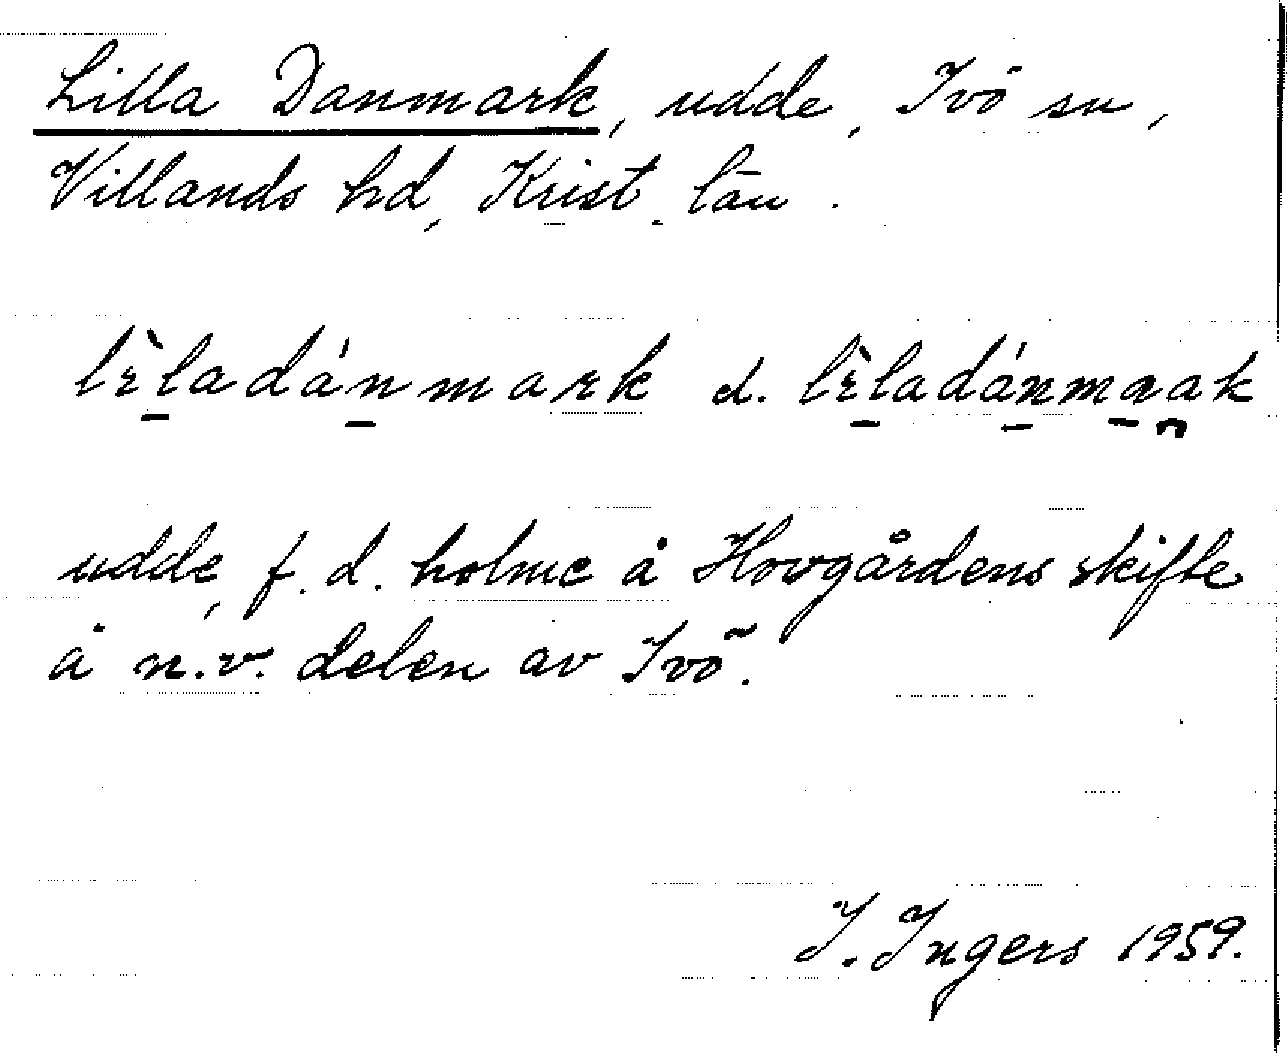 Lilla Danmark, udde, Ivö sn,
Villands hd, Krist. län.
lèladánmark d. lèladánmaak
udde, f. d. holme å Hovgårdens skifte
å n.v. delen av Ivö.
I. Ingers 1959.